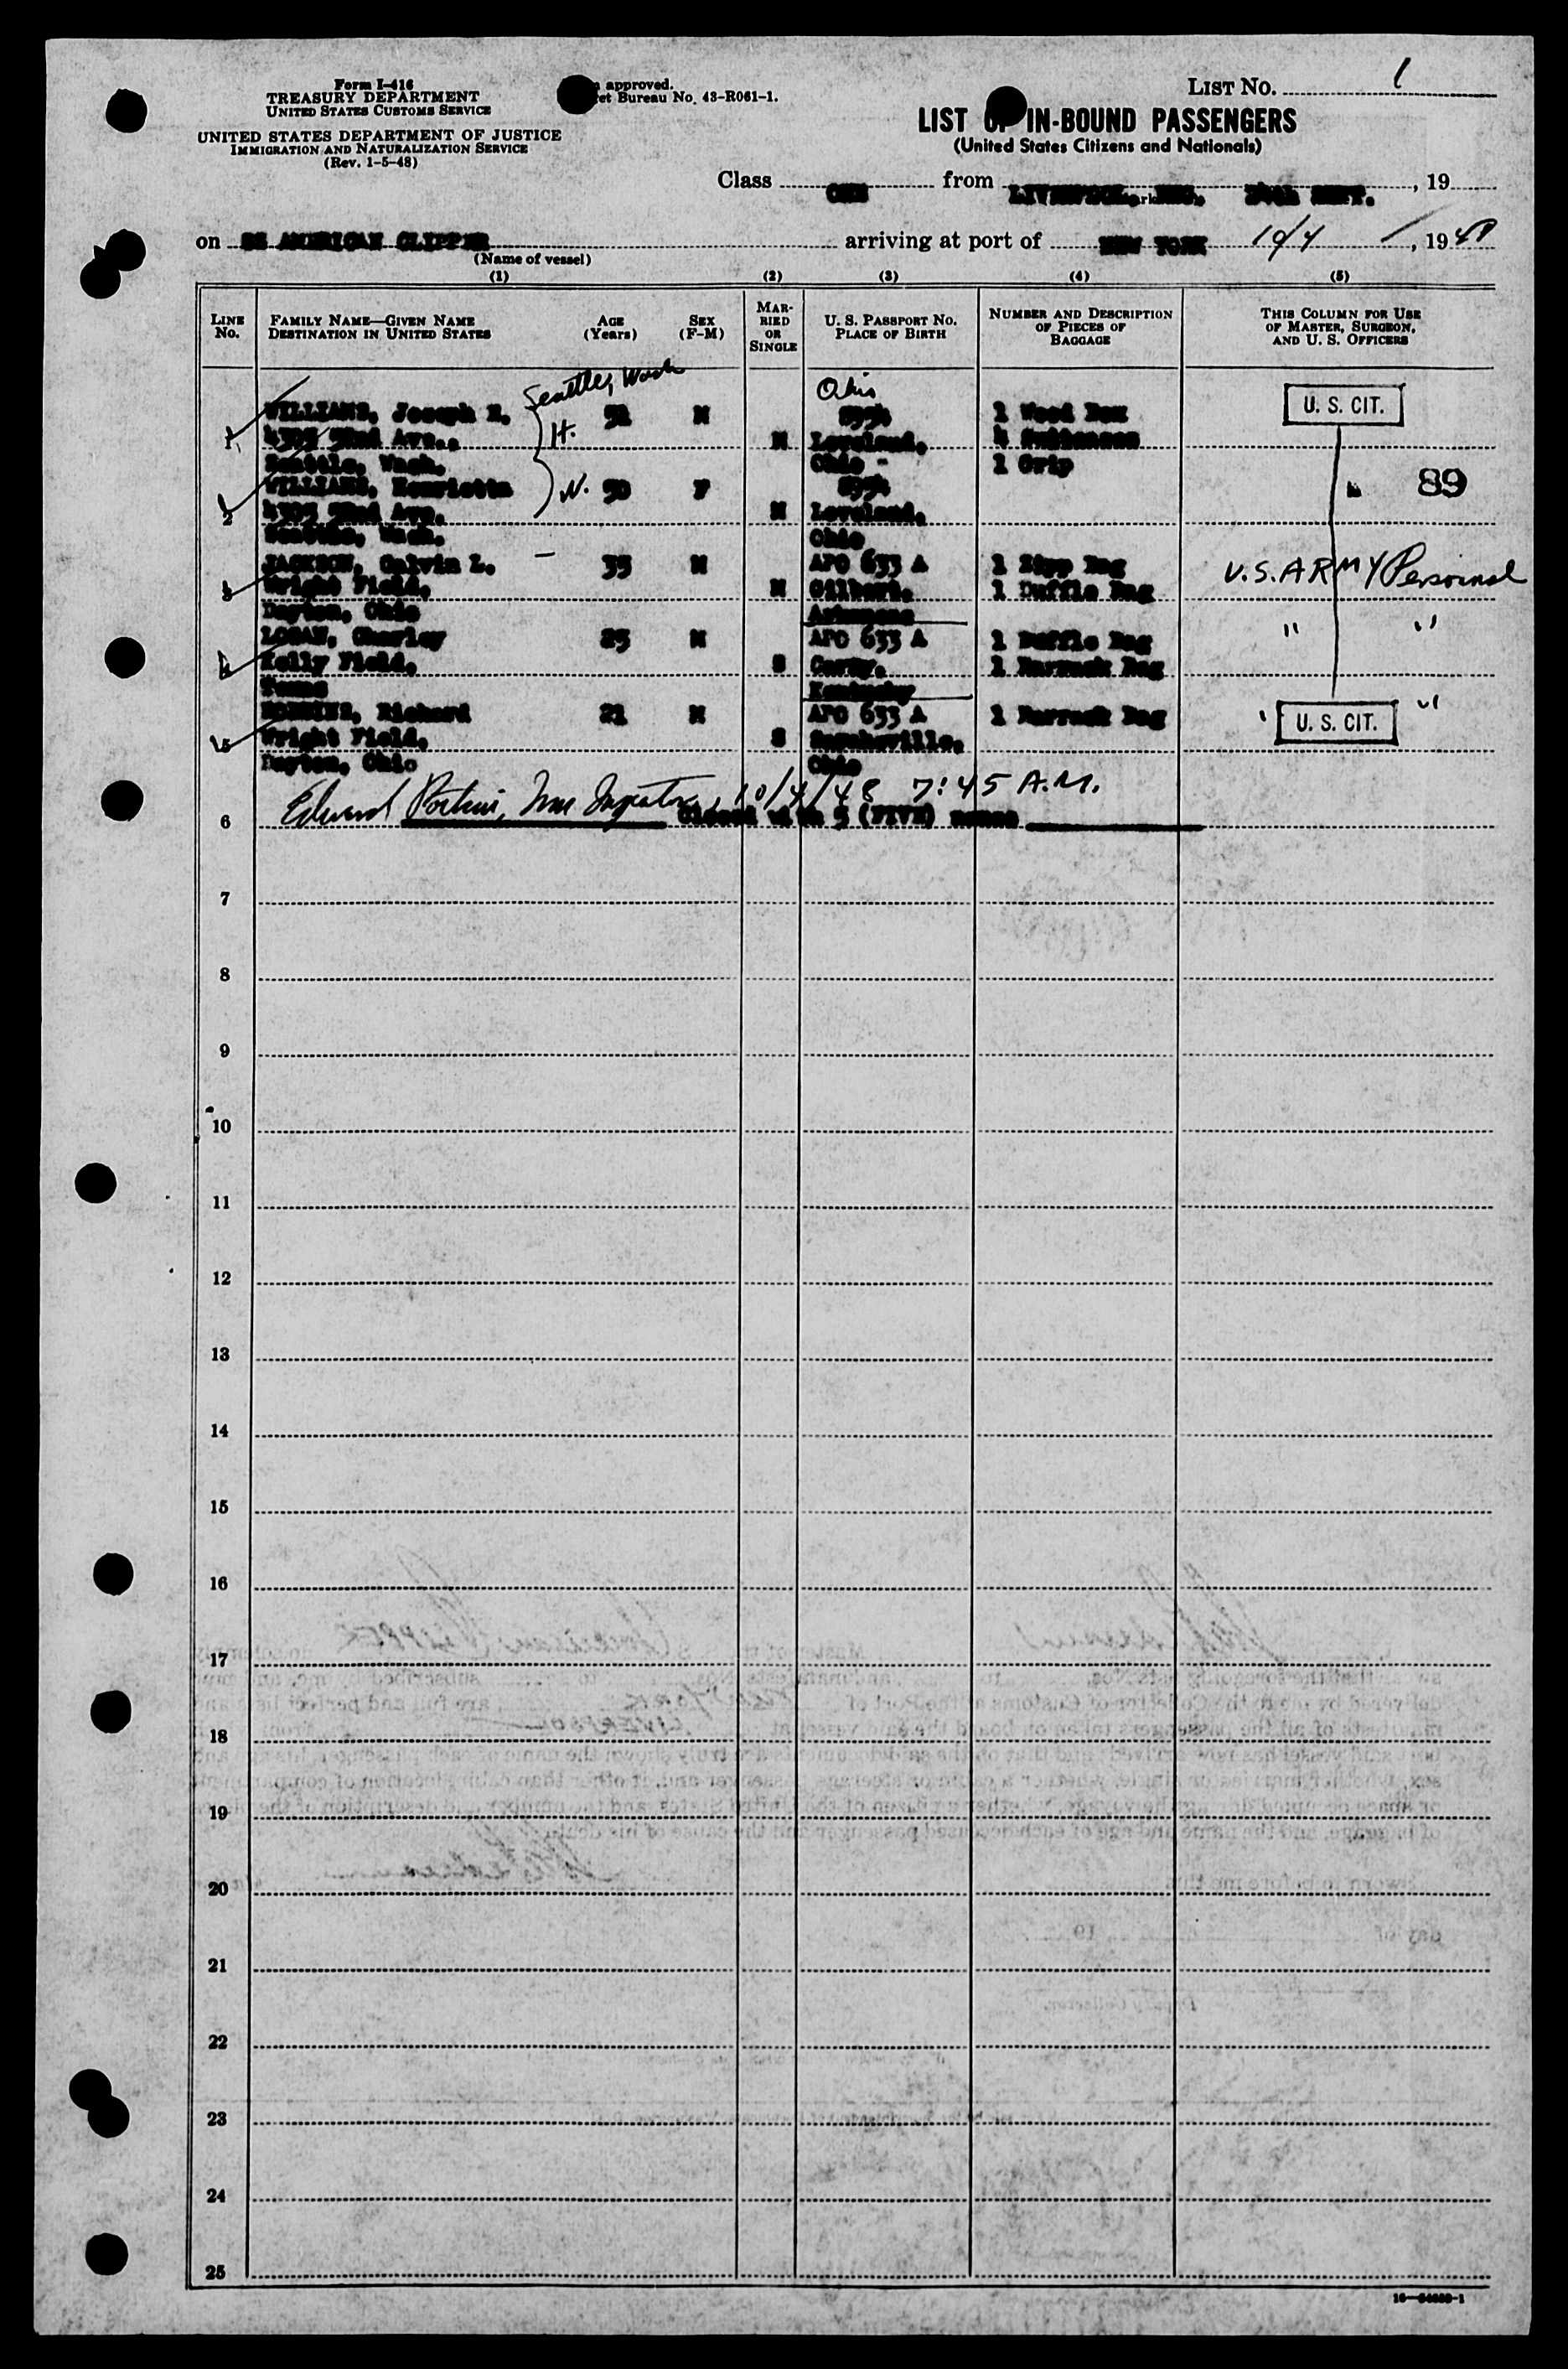 Form I-416
TREASURY DEPARTMENT
UNITED STATES CUSTOMS SERVICE
UNITED STATES DEPARTMENT OF JUSTICE
IMMIGRATION AND NATURALIZATION SERVICE
(Rev. 1-5-48)
approved.
et Bureau No. 43-R061-1.
LIST NO. 1
LIST OF IN-BOUND PASSENGERS
(United States Citizens and Nationals)
Class from LIVERPOOL, ENG. SEPT. , 19
on SS AMERICAN CLIPPER arriving at port of NEW YORK 10/4 , 1948
(Name of vessel)
(1) (2) (3) (4) (5)
LINE No. FAMILY NAME—GIVEN NAME DESTINATION IN UNITED STATES AGE (Years) SEX (F-M) MARRIED OR SINGLE U. S. PASSPORT NO. PLACE OF BIRTH NUMBER AND DESCRIPTION OF PIECES OF BAGGAGE THIS COLUMN FOR USE OF MASTER, SURGEON, AND U. S. OFFICERS
Seattle, Wash Ohio
WILLIAMS, Joseph E. 52 M 1 Wood Box U. S. CIT.
1 4305 52nd Ave., H. M Loveland, 4 Suitcases
Seattle, Wash. Ohio - 1 Grip
WILLIAMS, Henrietta W. 50 F 89
2 4305 52nd Ave. M Loveland,
Seattle, Wash. Ohio
JACKSON, Calvin L. – 35 M APO 633 A 1 Zipp Bag U.S. ARMY Personnal
3 Wright Field, M Gilbert, 1 Duffle Bag
Dayton, Ohio Arkansas
LOGAN, Charley 25 M APO 633 A 1 Duffle Bag " "
4 Kelly Field, S 1 Barrack Bag
Texas Kentucky
Richard 21 M APO 633 A 1 Barrack Bag " U. S. CIT. "
5 Wright Field, S
Dayton, Ohio Ohio
Edward Imm Inspector, 10/4/48 7:45 A.M.
6 Closed with 5 (FIVE) names
7
8
9
10
11
12
13
14
15
16
17
18
19
20
21
22
23
24
25